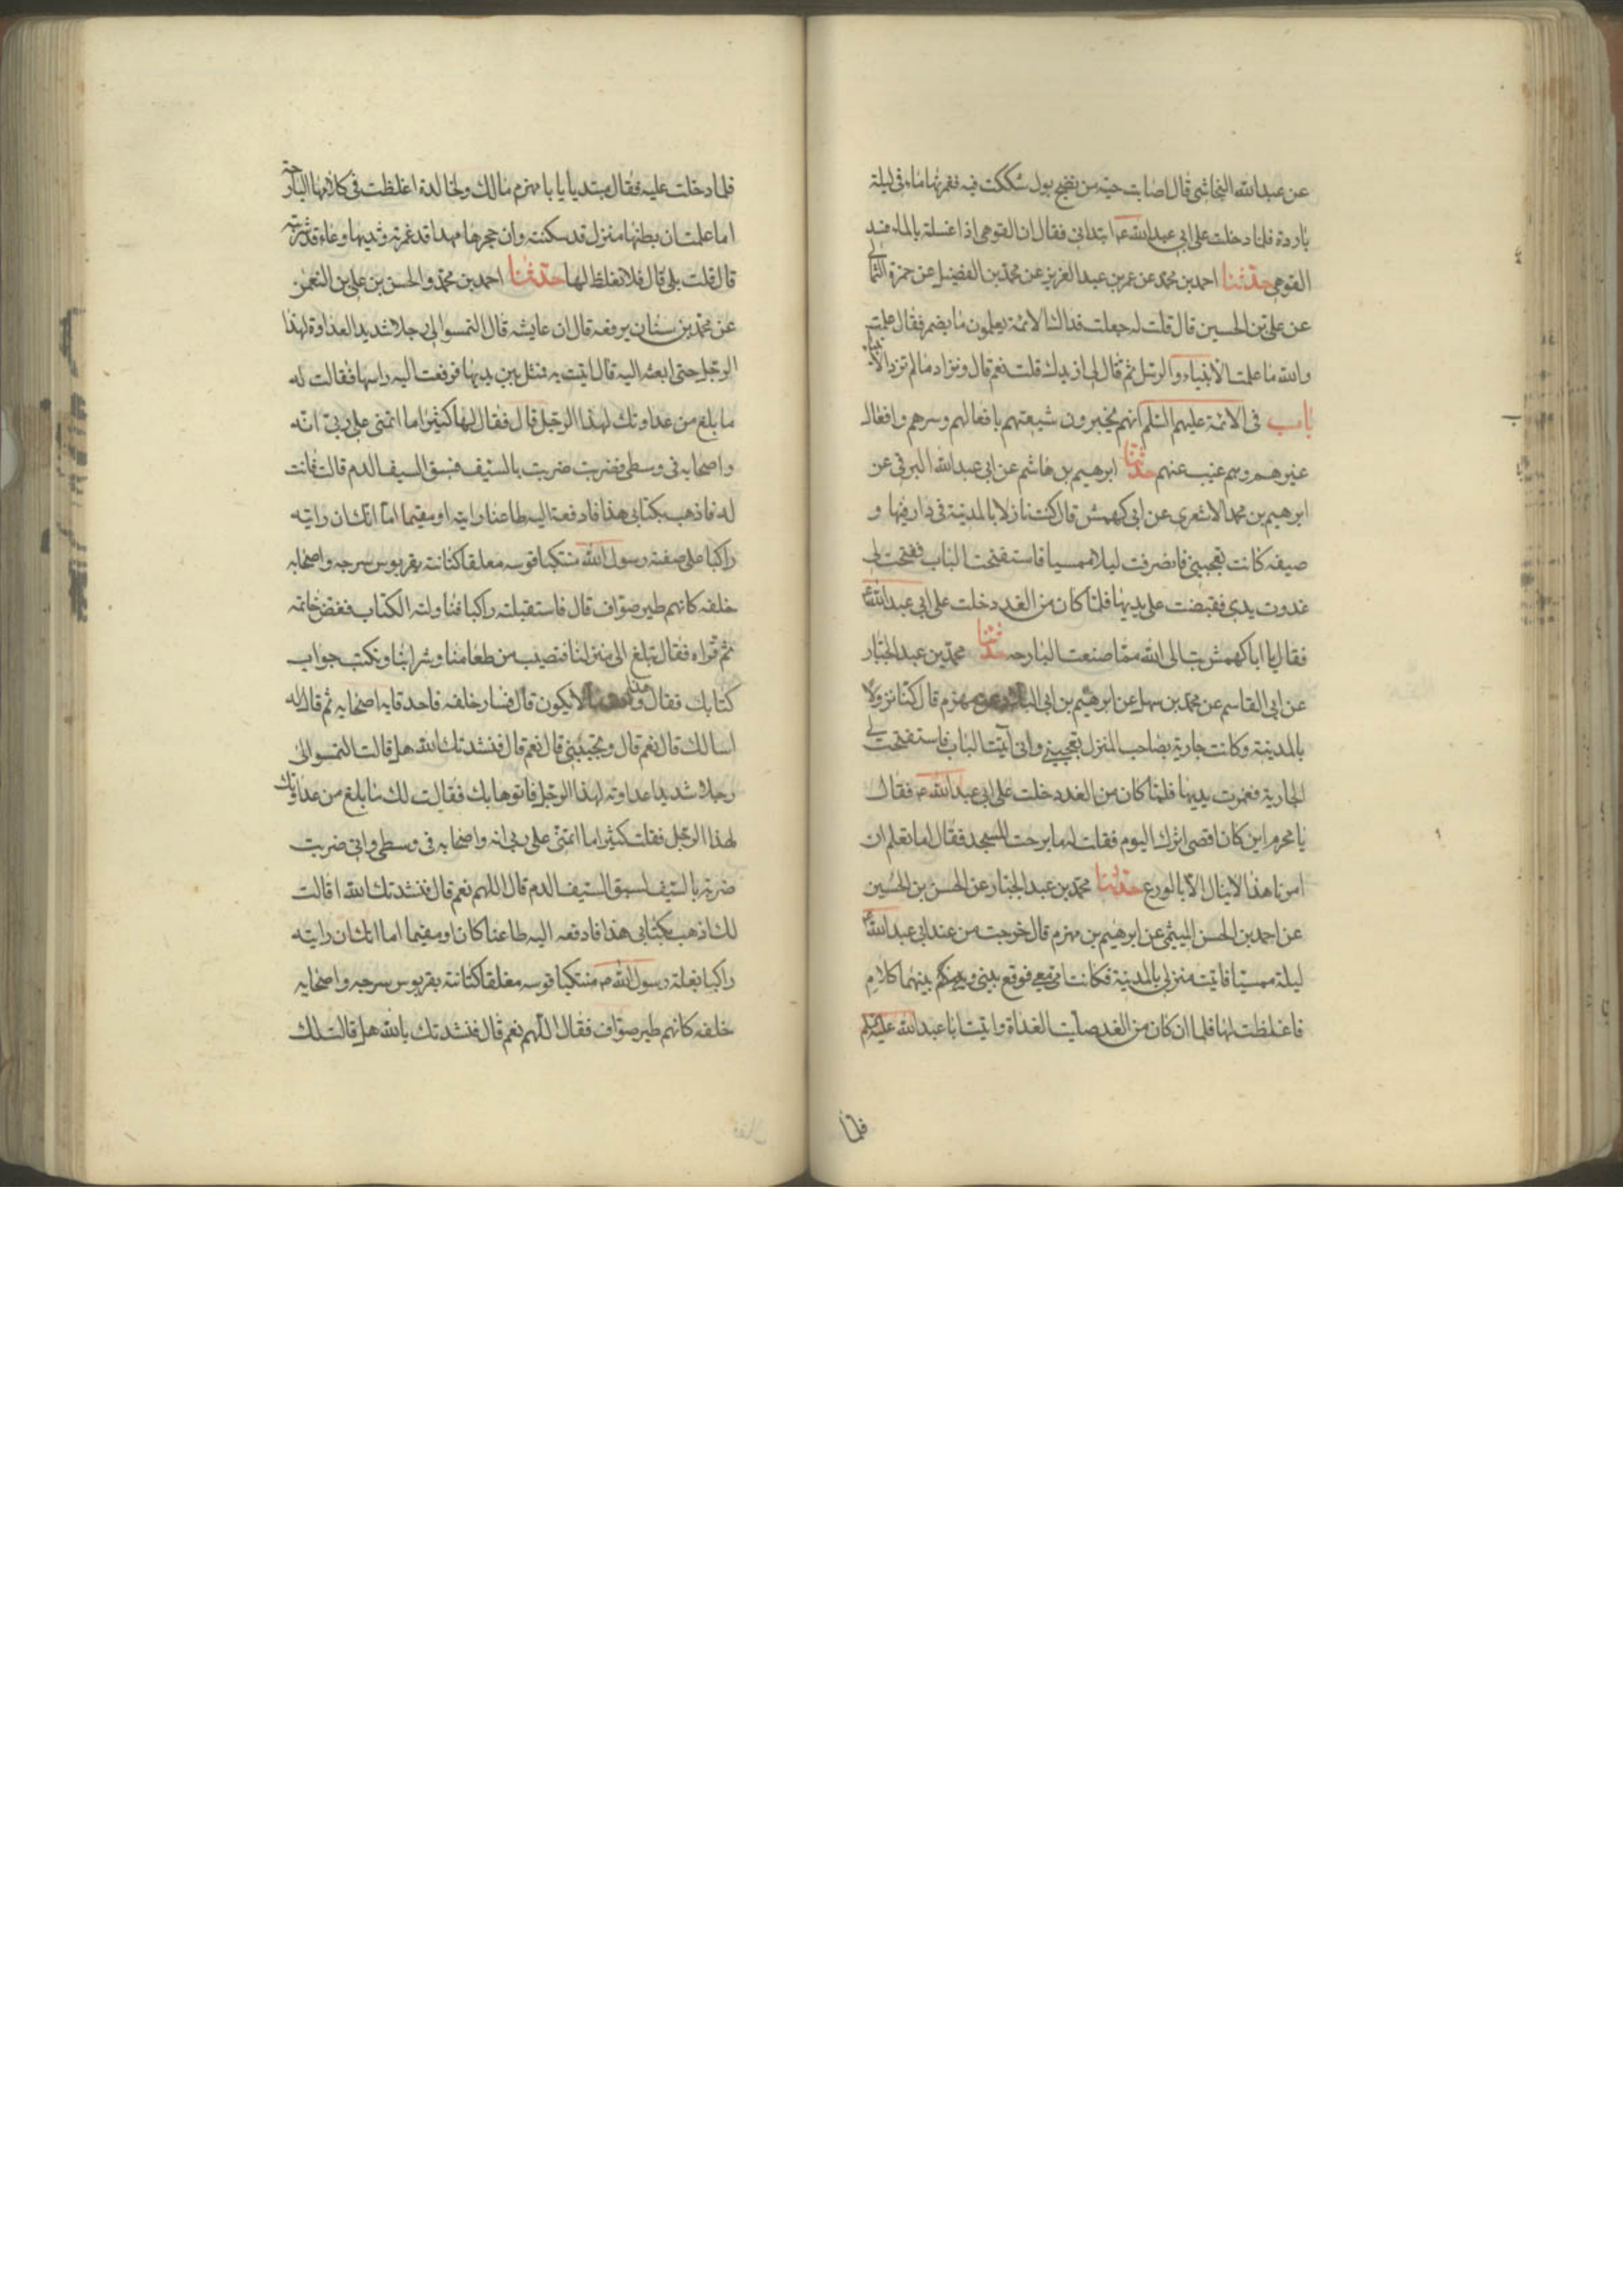 عن عبدالله النجاشى قال اصابت جبة من نضح بول شككت فيه فغمرتها ماء فى ليلة
باردة فلما دخلت على ابى عبدالله ع ابتدانى فقال ان الفرو اذا غسلته بالماء فسد
الفرو حدثنا احمد بن محمد عن عمر بن عبد العزيز عن محمد بن الفضيل عن حمزة الثمالى
عن على بن الحسين قال قلت له جعلت فداك الائمة يعلمون ما يضمر فقال علمت
والله ما علمت الانبياء والرسل ثم قال لى ازيدك قلت نعم قال ونزاد ما لم تزد الانبياء
باب فى الائمة عليهم السلم انهم يخبرون شيعتهم بافعالهم وسرهم وافعال
غيرهم وهم غيب عنهم حدثنا ابرهيم بن هاشم عن ابى عبدالله البرقى عن
ابرهيم بن محمد الاشعرى عن ابى كهمش قال كنت نازلا بالمدينة فى دار فيها و
صيفه كانت تعجبنى فانصرفت ليلا ممسيا فاستفتحت الباب ففتحت لى
غدوت يدى فقبضت على يديها فلما كان من الغد دخلت على ابى عبدالله ع
فقال يا ابا كهمش تب الى الله مما صنعت البارحه حدثنا محمد بن عبد الجبار
عن ابى القاسم عن محمد بن سهل عن ابرهيم بن ابى البلاد عن مهزم قال كنا نزولا
بالمدينة وكانت جارية بصاحب المنزل تعجبنى وانى اتيت الباب فاستفتحت لى
الجارية فغمزت يديها فلما كان من الغد دخلت على ابى عبدالله ع فقال
يا مهزم اين كان اقصى اثرك اليوم فقلت لها برحت المسجد فقال اما تعلم ان
امرنا هذا لا ينال الا بالورع حدثنا محمد بن عبد الجبار عن الحسن بن الحسين
عن احمد بن الحسن الميثمى عن ابرهيم بن مهزم قال خرجت من عند ابى عبدالله ع
ليلة ممسيا فاتيت منزلى بالمدينة فكانت امى معى فوقع بينى وبينها كلام
فاغلظت لها فلما ان كان من الغد صليت الغداة واتيت ابا عبدالله عليه السلم
فلما
فلما دخلت عليه فقال مبتديا يا با مهزم مالك ولخالدة اغلظت فى كلامها البارحة
اما علمت ان بطنها منزل قد سكنته وان حجرها مهدا قد غمزته وثديها وعاء قد شربته
قال قلت بلى قال فلا تغلظ لها حدثنا احمد بن محمد والحسن بن على بن النعمن
عن محمد بن سنان يرفعه قال ان عايشه قال التمسوا لى رجلا شديد العداوة لهذا
الرجل حتى ابعثه اليه قال اتيت به فمثل بين يديها فرفعت اليه راسها فقالت له
ما بلغ من عداوتك لهذا الرجل قال فقال لها كثيرا ما اتمنى على ربى انه
واصحابه فى وسطى فضربت ضربت بالسيف فسبق السيف الدم قالت فانت
له فاذهب بكتابى هذا فادفعه اليه ظاعنا رايته او مقيما اما انك ان رايته
راكبا على صفته رسول الله متنكبا قوسه معلقا كنانته بقربوس سرجه واصحابه
خلفه كانهم طير صواف قال فاستقبلته راكبا فناولته الكتاب ففض خاتمه
ثم قراه فقال تبلغ الى منزلنا فتصيب من طعامنا وشرابنا ونكتب جواب
كتابك فقال لا يكون قال فسار خلفه فاحدق به اصحابه ثم قال له
اسالك قال نعم قال وتجيبنى قال نعم قال فنشدتك الله هل قالت التمسوا لى
رجلا شديدا عداوته لهذا الرجل فاتوها بك فقالت لك ما بلغ من عداوتك
لهذا الرجل فقلت كثيرا ما اتمنى على ربى انه واصحابه فى وسطى وانى ضربت
ضربة بالسيف لسبق السيف الدم قال اللهم نعم قال فنشدتك الله اقالت
لك اذهب بكتابى هذا فادفعه اليه ظاعنا كان او مقيما اما انك ان رايته
راكبا بغلة رسول الله ص متنكبا قوسه معلقا كنانته بقربوس سرجه واصحابه
خلفه كانهم طير صواف فقال اللهم نعم قال فنشدتك بالله هل قالت لك
فقال